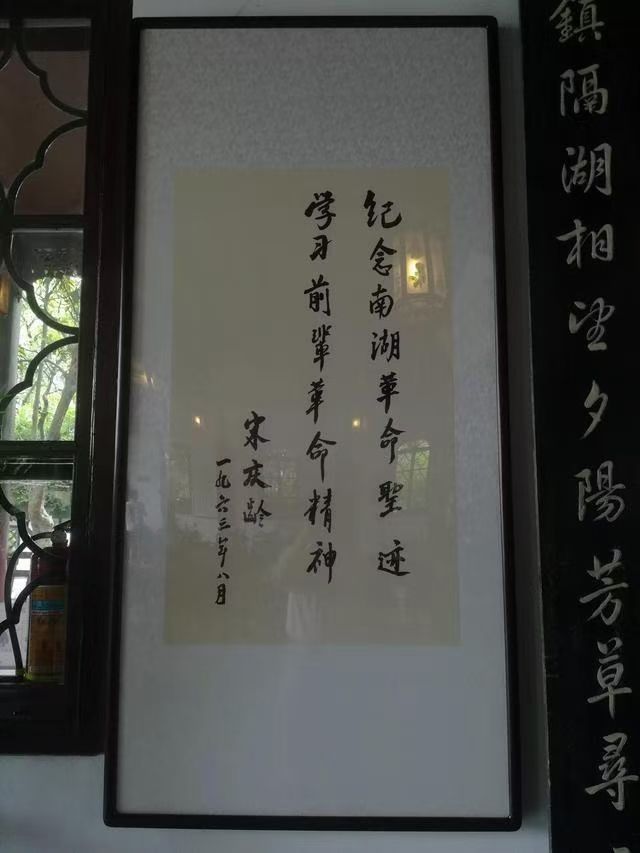 鎮隔湖相望夕陽芳草尋
纪念南湖革命聖迹
学习前辈革命精神
宋庆龄
一九六三年八月